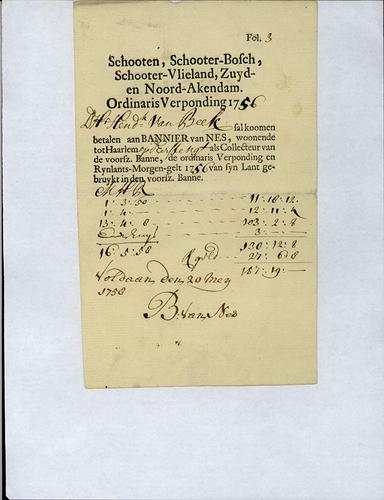 Fol. 3
Schooten, Schooter-Bosch,
Schooter-Vlieland, Zuyd-
en Noord-Akendam.
Ordinaris Verponding 1756
Dhr Hendk Van Beek sal koomen
betalen aan BANNIER van NES, woonende
tot Haarlem als Collecteur van
de voorsz. Banne, de ordinaris Verponding en
Rynlants-Morgen-gelt 1756 van syn Lant ge-
bruykt in den voorsz. Banne.
M H R
1: 3: 50 11: 18: 12
1: 4: 12: 11: 4
13: 4: 8 103: 2: 8
3:
16: 5: 58 130: 12: 8
27: 6: 8
157: 19:
Voldaan den 20 Mey
1758
B: Van Nes